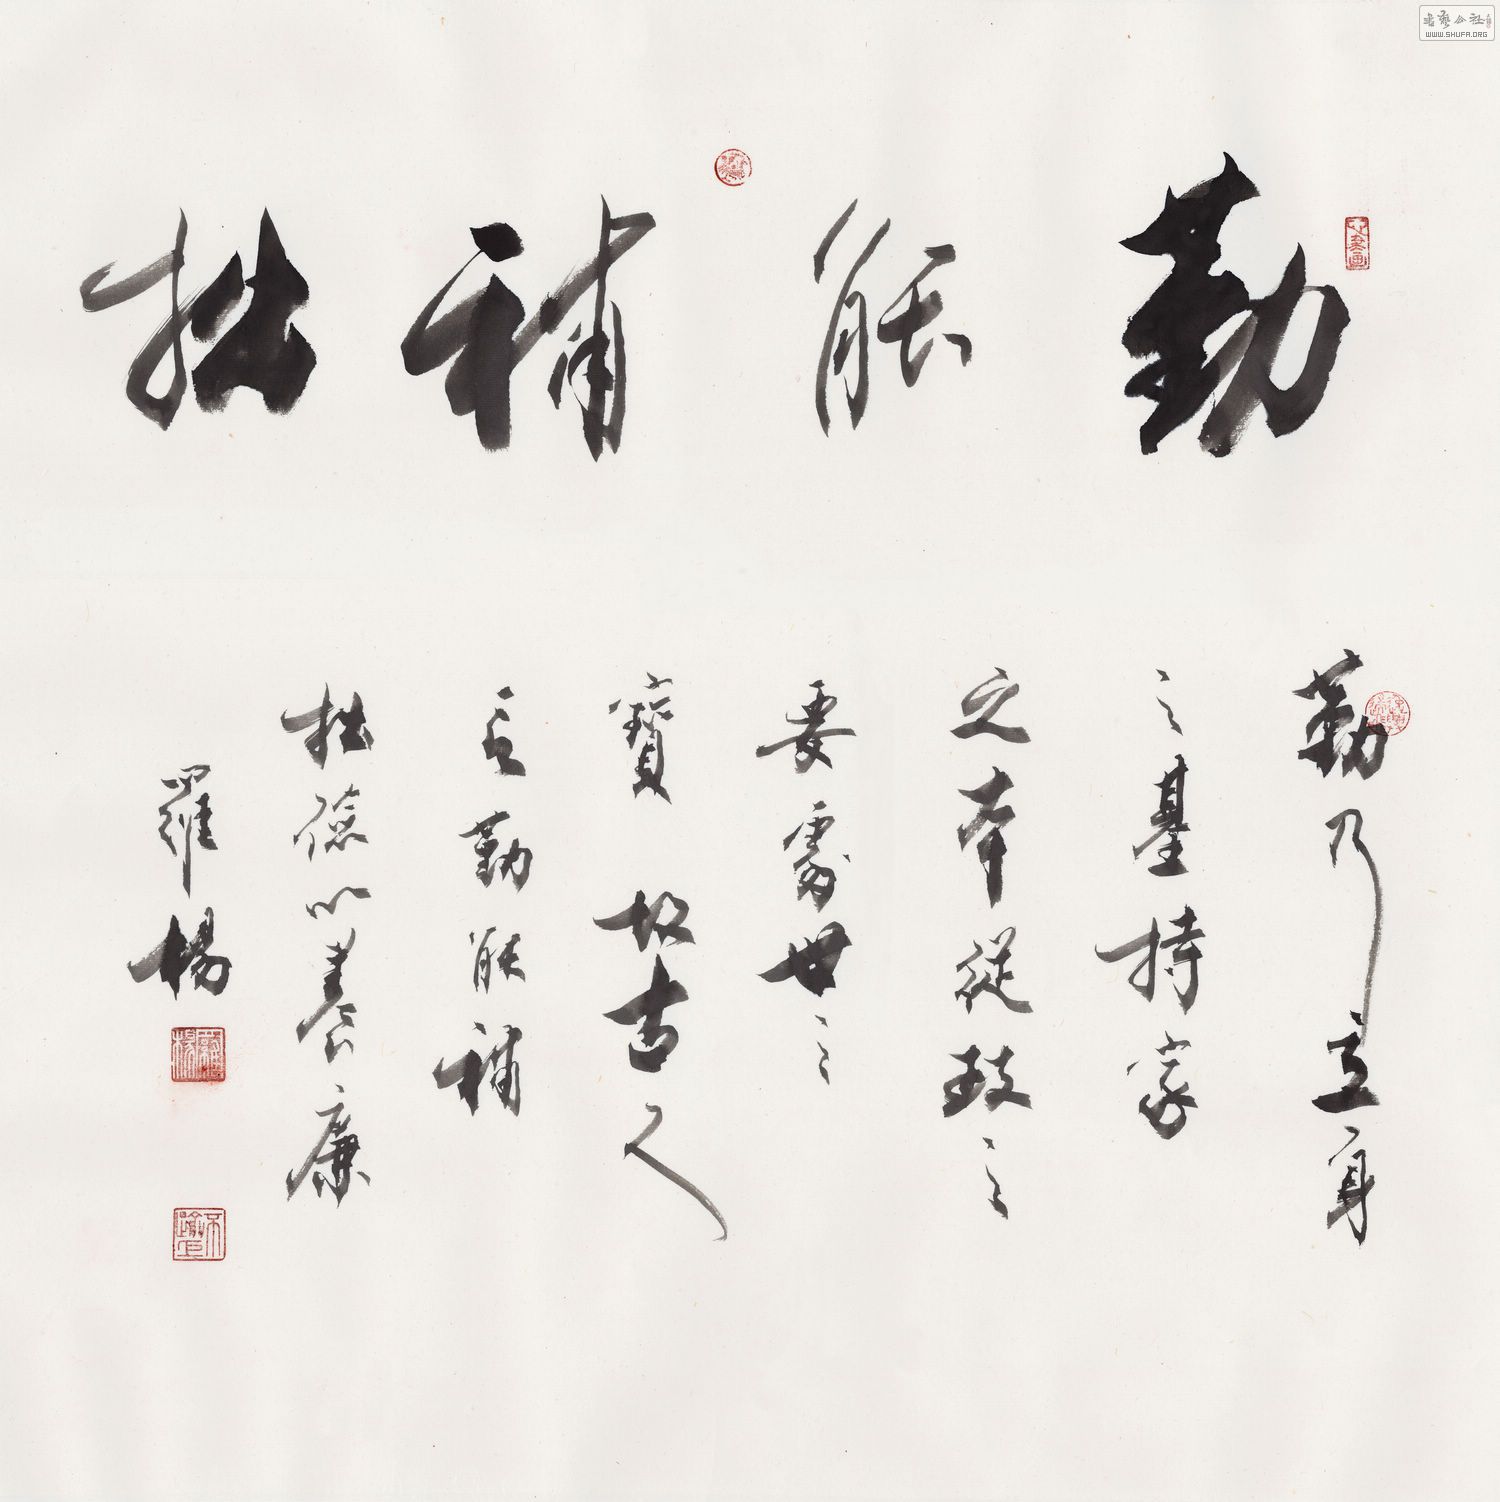 勤能補拙
勤乃立身
之基持家
之本從政之
要處世之
寶故古人
云勤能補
拙儉以養廉
羅楊
羅楊
書藝公社
WWW.SHUFA.ORG